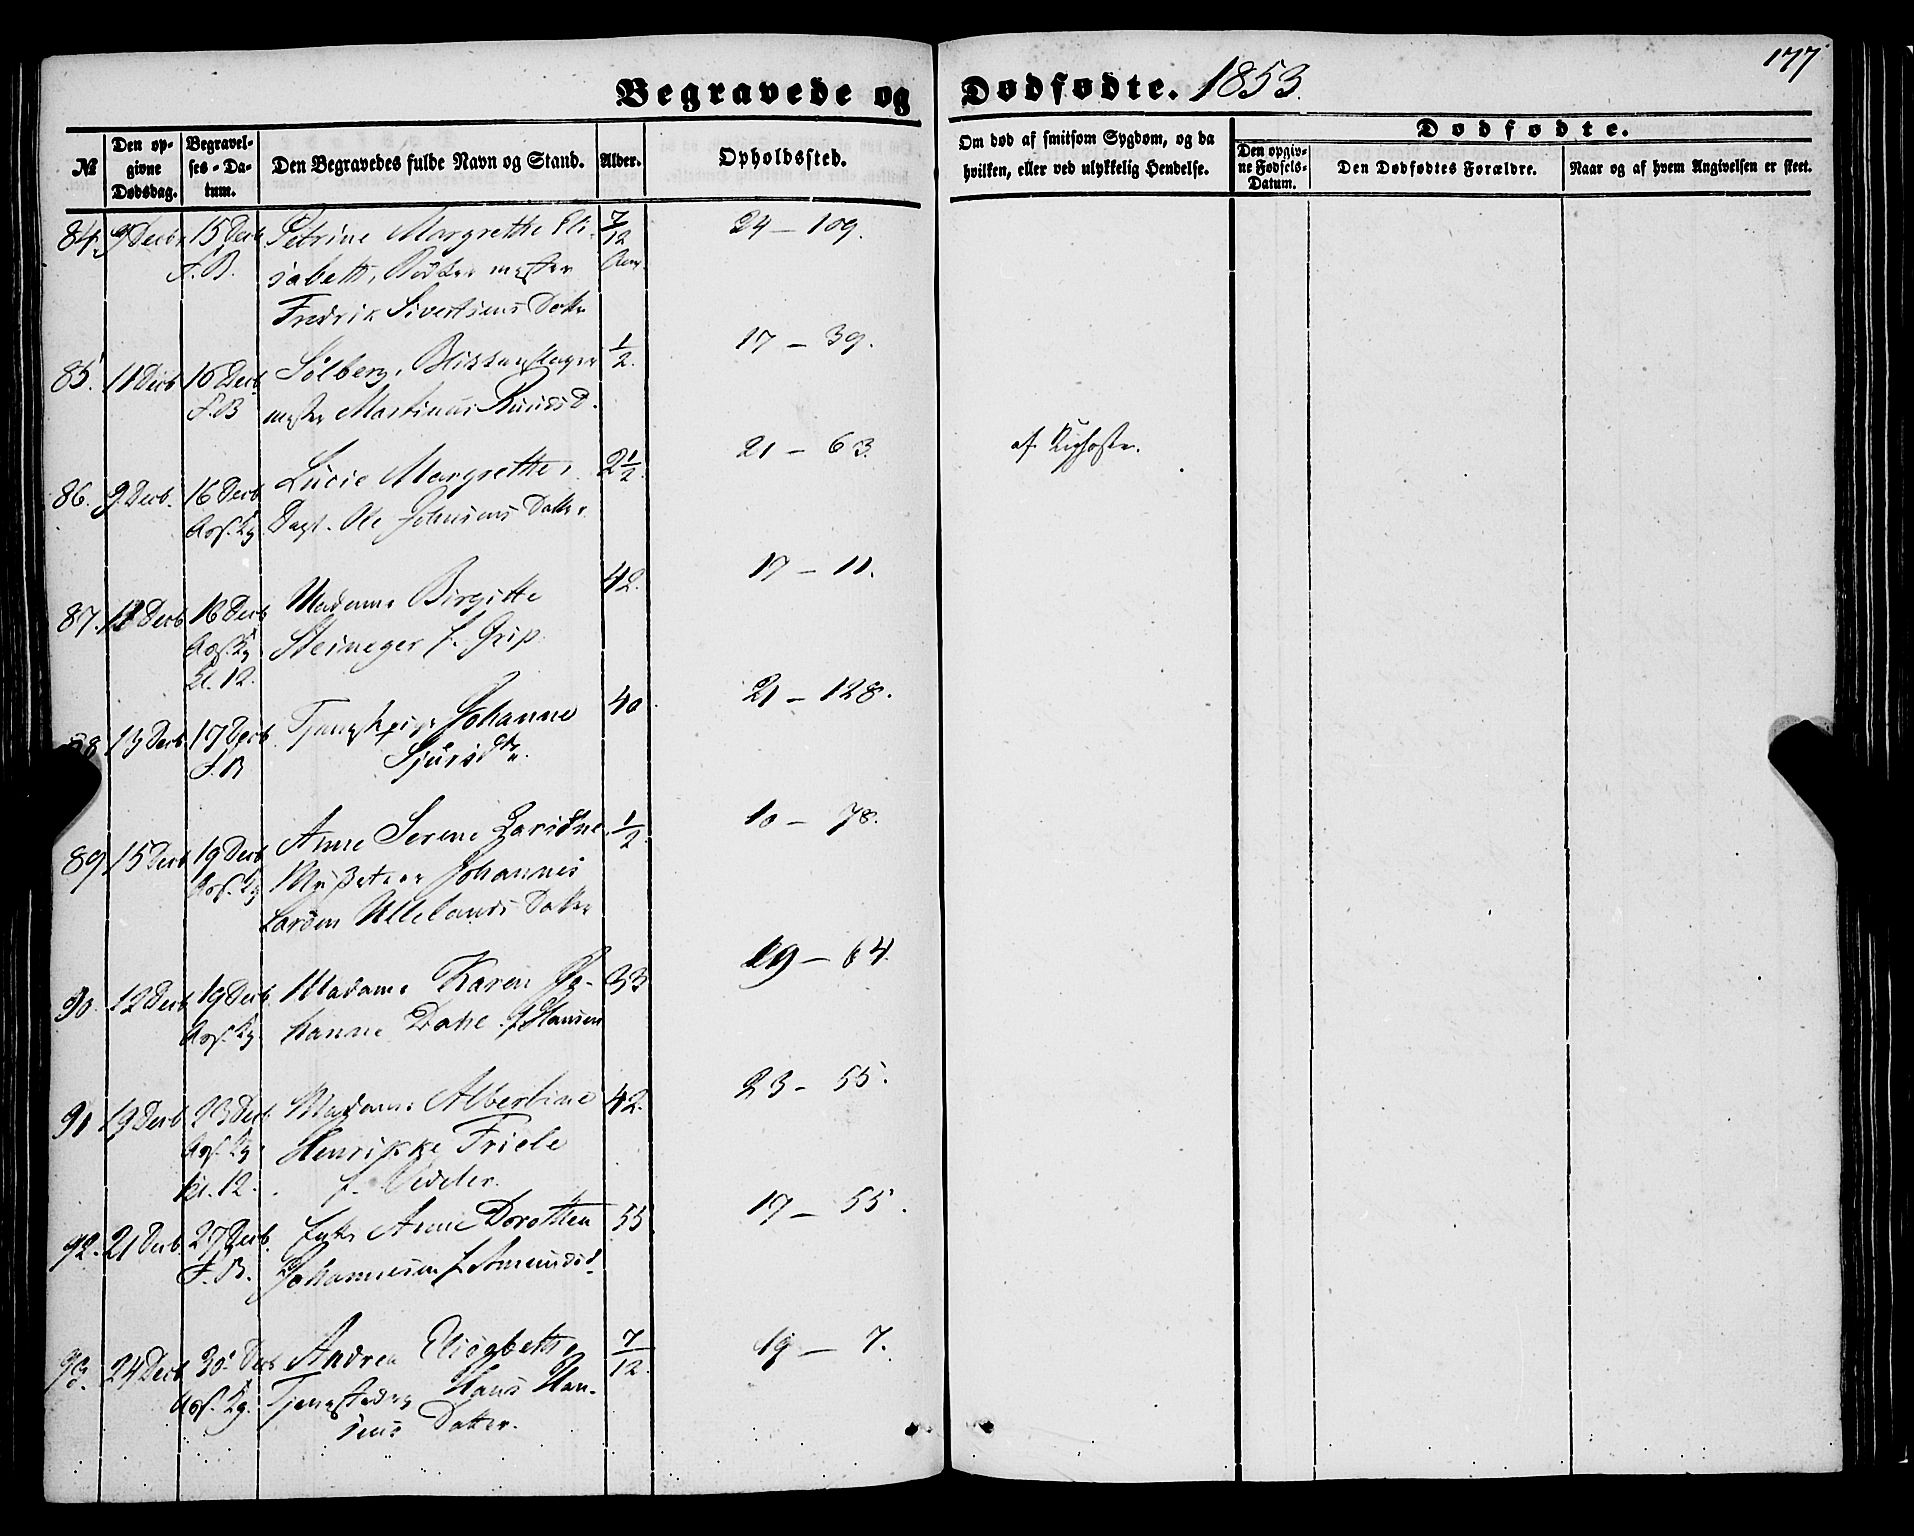 177
Begravede og Dødfødte. 1853.
№
Den opgivne Dødsdag.
Begravelses-Datum.
Den Begravedes fulde Navn og Stand.
Alder.
Opholdssted.
Om død af smitsom Sygdom, og da hvilken, eller ved ulykkelig Hendelse.
Dødfødte.
Den opgivne Fødsels-Datum.
Den Dødfødtes Forældre.
Naar og af hvem Angivelsen er skeet.
84. 9 Decbr 15 Decb Petrine Margrethe Eli- 7/12 24 – 109.
F.B. sabeth, Bødkermester Aar
Fredrik Sivertsens Dattr
85. 11 Decb 16 Decb Sølberg, Blikkenslager 1/2. 17 – 39.
F.B mester Martinus Knuds D.
86. 9 Decb. 16 Decb Lucie Margrethe, 2 1/2. 21 – 63. af Kighoste.
Dagl. Ole Johnsens Datter
87. 11 Decb 16 Decb Madame Birgitte 42. 17 – 11.
Steineger f. Grip.
Kl. 12.
88 13 Decb 17 Decb Tjenestepige Johanne 40 21 – 128.
F.B Sjursdtr.
89 15 Decb 19 Decb Anne Serene Larsine 1/2. 10 – 78.
Johannes
Larsen Ullelands Datter
90. 12 Decb 19 Decb Madame Karen Jo- 33 19 – 64.
hanne Dahl f Hansen
91 19 Decb 23 Decb Madame Albertine 42. 23 – 55.
Henrikke Friele
Kl. 12. f. Vedeler.
92. 21 Decb. 27 Decb. Enke Anne Dorothea 55. 17 – 55.
F.B. Johannesen f Amundsd.
93. 24 Decb 30 Decb Andrea Elisabeth, 7/12. 19 – 7.
Hans Han-
sens Datter.